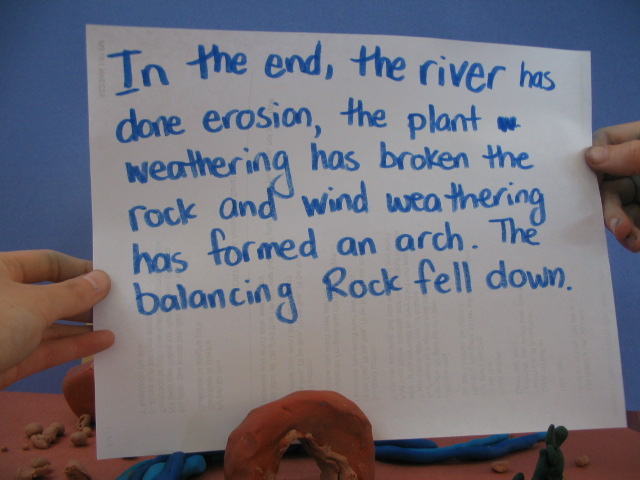 In the end, the river has
done erosion, the plant
weathering has broken the
rock and wind weathering
has formed an arch. The
balancing Rock fell down.